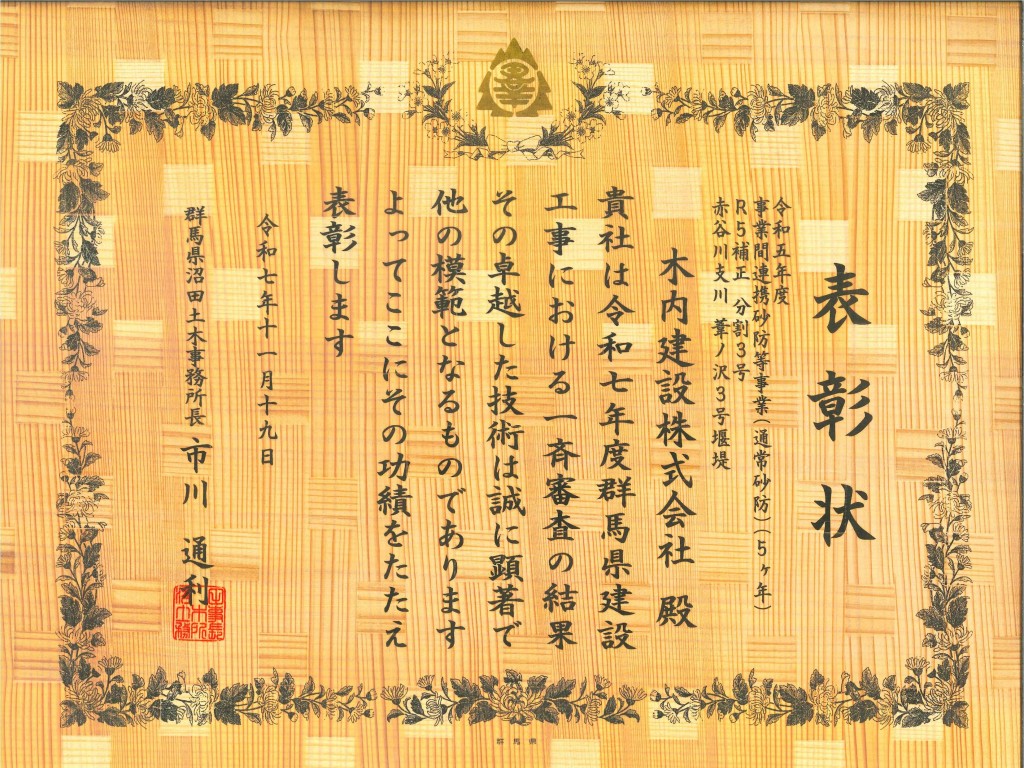 表彰状
令和五年度
事業間連携砂防等事業(通常砂防)(5ヶ年)
R5補正 分割3号
赤谷川支川 葦ノ沢3号堰堤
木内建設株式会社 殿
貴社は令和七年度群馬県建設
工事における一斉審査の結果
その卓越した技術は誠に顕著で
他の模範となるものであります
よってここにその功績をたたえ
表彰します
令和七年十一月十九日
群馬県沼田土木事務所長 市川 通利
群馬県